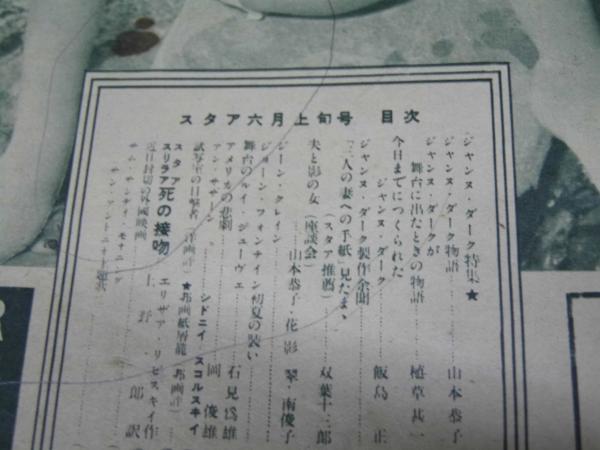 スタア六月上旬号 目次
ジャンヌ・ダーク特集★
ジャンヌ・ダーク物語 山本恭子
ジャンヌ・ダークが
舞台に出たときの物語 植草甚一
今日までにつくられた
ジャンヌ・ダーク 飯島正
ジャンヌ・ダーク製作余聞
「三人の妻への手紙」見たまゝ
(スタア推薦) 双葉十三郎
夫と影の女(座談会)
山本恭子・花影翠・南俊子
ジーン・クレイン
ジョーン・フォンテイン初夏の装い
舞台のルイ・ジューヴェ
アメリカの悲劇 石見為雄
アン・サザーン 岡俊雄
シドニイ・スコルスキイ
試写室の目撃者(洋画評)★邦画紙屑籠(邦画評)
スタア
スリラア 死の接吻 エリザア・リプスキイ作
上野一郎訳
近日封切の外國映画